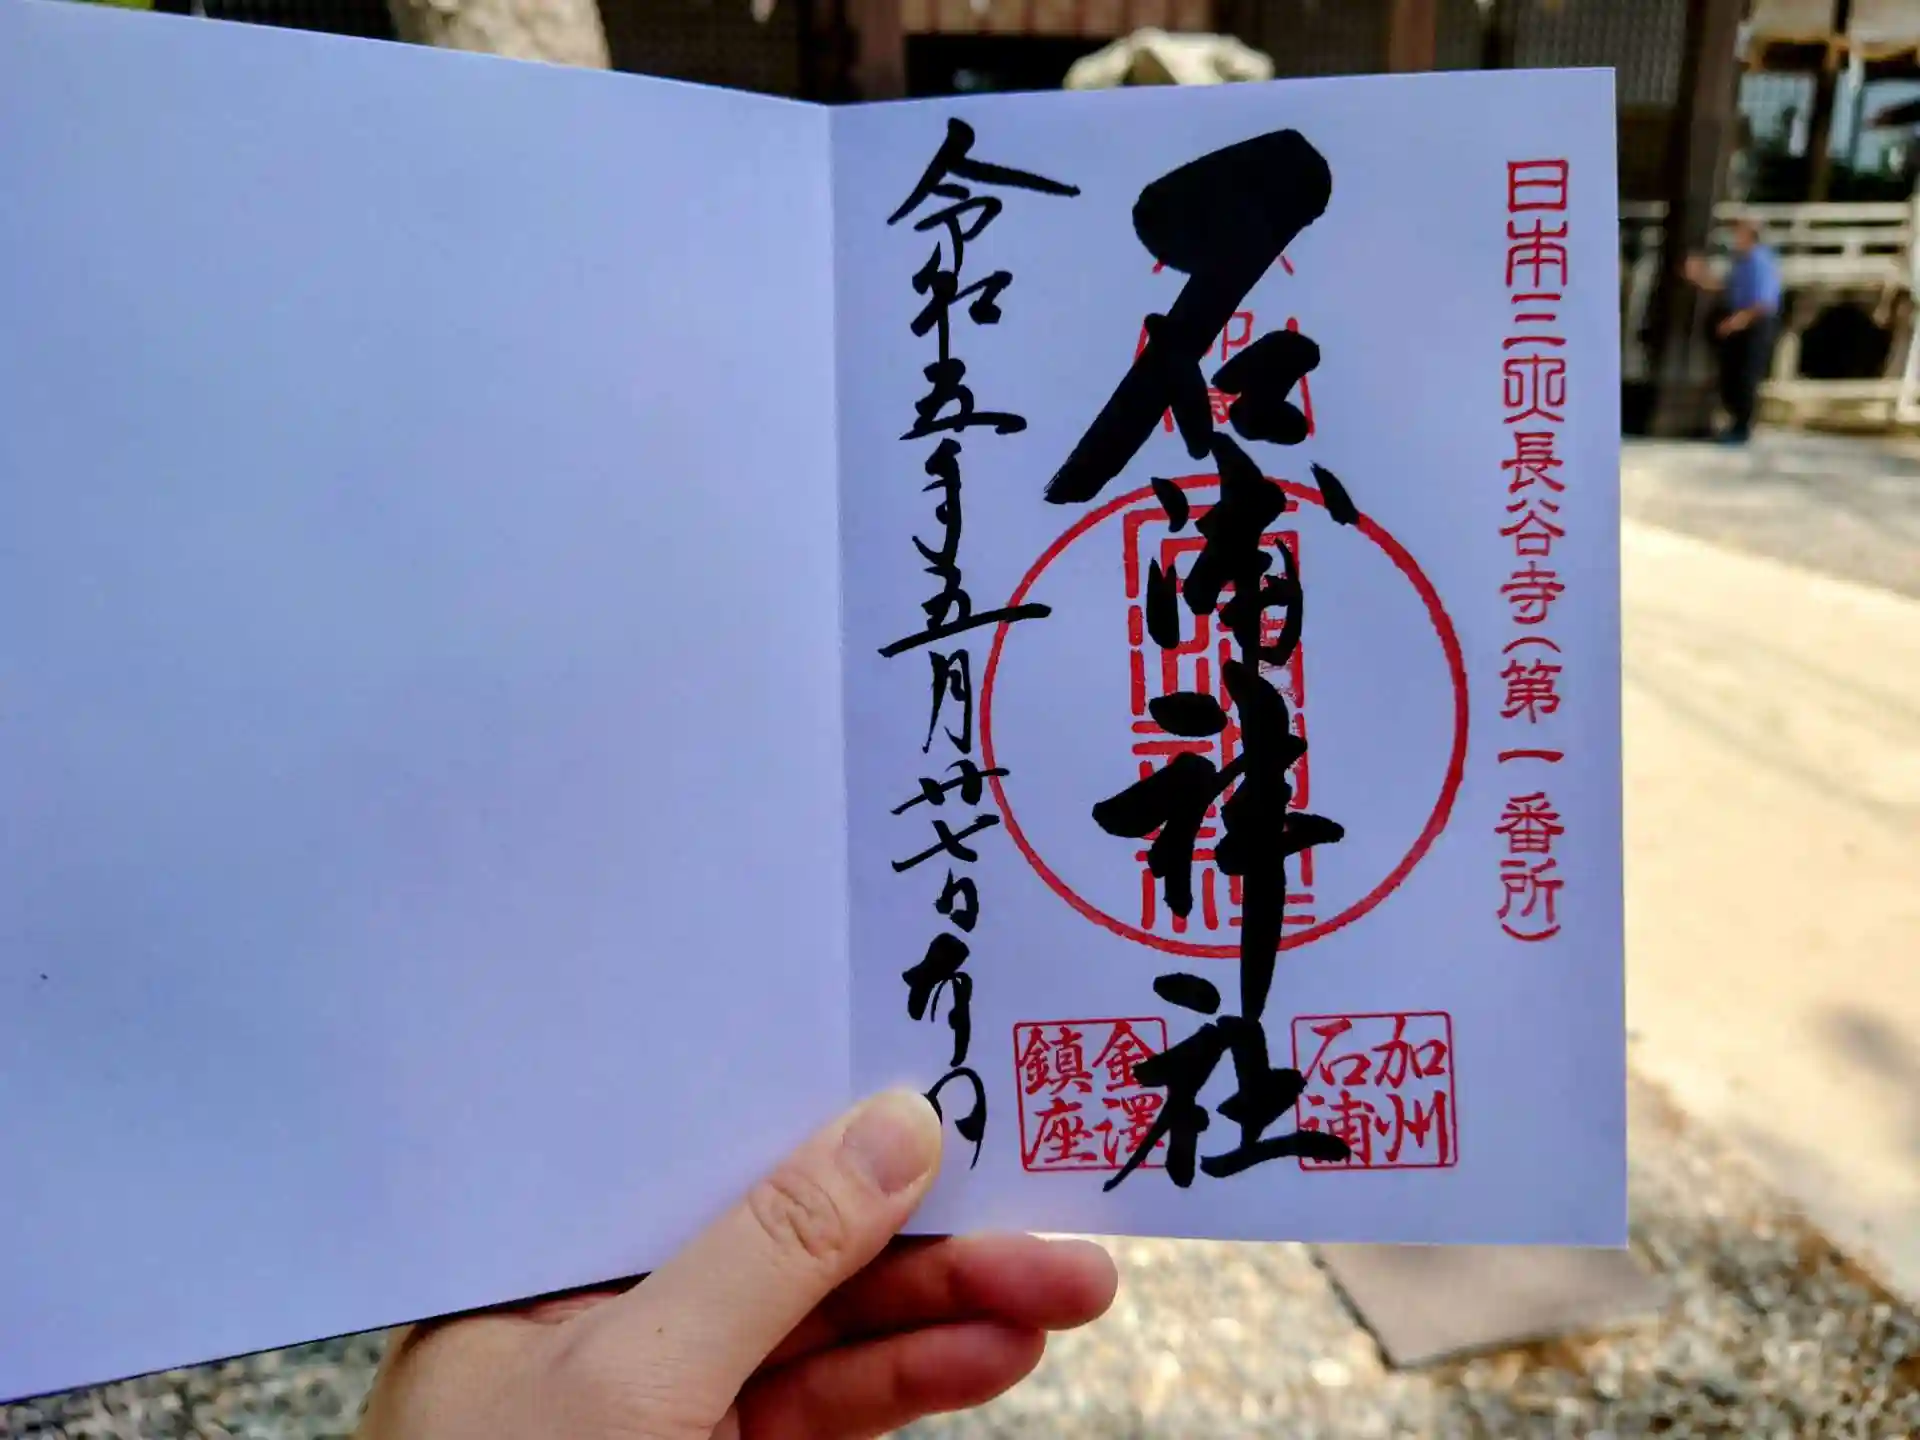 日本三所長谷寺(第一番所)
石浦神社
加州
石浦
金澤
鎮座
令和五年五月廿七日